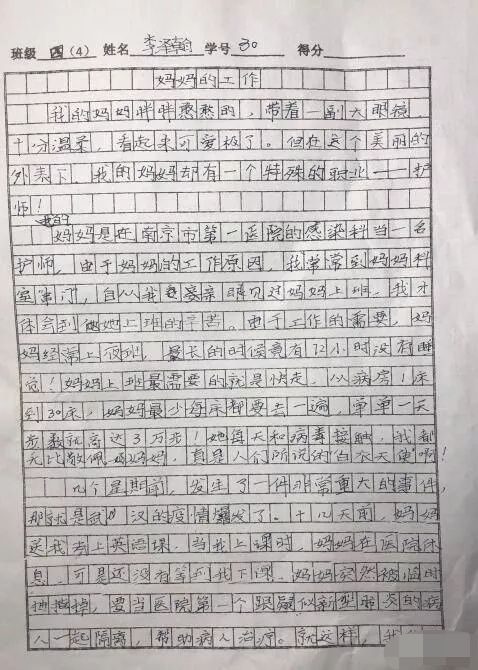 班级 四（4） 姓名 李泽翰 学号 30 得分
妈妈的工作
我的妈妈胖胖憨憨的，带着一副大眼镜，
十分温柔，看起来可爱极了。但在这个美丽的
外表下，我的妈妈却有一个特殊的职业——护
师！
我的妈妈是在南京市第一医院的感染科当一名
护师，由于妈妈的工作原因，我常常到妈妈科
室串门，自从我亲眼见过妈妈上班，我才
体会到她上班的辛苦。由于工作的需要，妈
妈经常上夜班，最长的时候竟有12小时没有睡
觉！妈妈上班最需要的就是快走，从病房1床
到30床，妈妈最少每床都要去一遍，单单一天
步数就高达3万步！她每天和病毒接触，我都
无比敬佩妈妈，真是人们所说的"白衣天使"啊！
几个星期前，发生了一件非常重大的事件，
那就是武汉的疫情爆发了。十几天前，妈妈
送我去上英语课，当我上课时，妈妈在医院休
息，可是还没有等到我下课，妈妈突然被临时
，要当医院第一个跟疑似新型肺炎的病
人一起隔离，帮助病人治疗。就这样，我